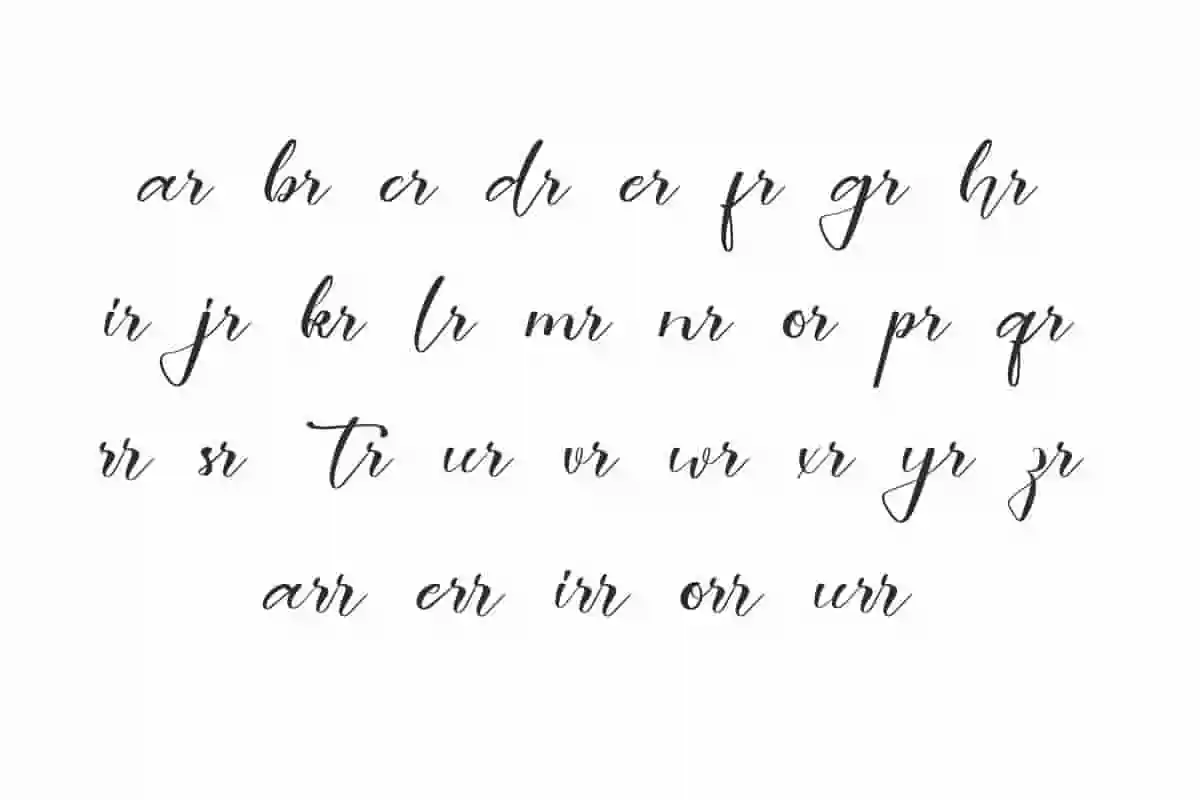 ar br cr dr er fr gr hr
ir jr kr lr mr nr or pr qr
rr sr tr ur vr wr xr yr zr
arr err irr orr urr